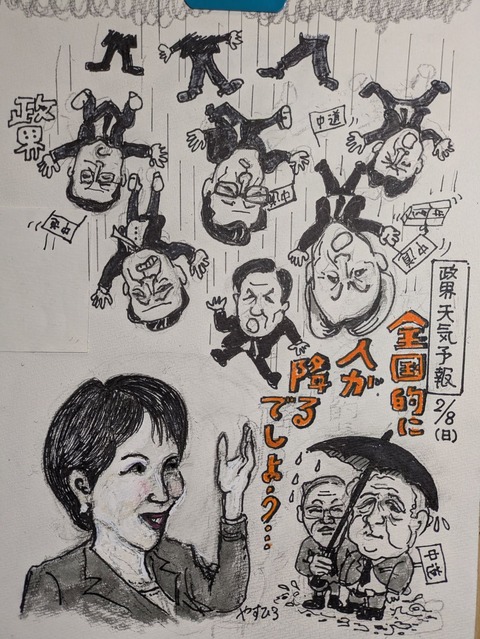 政界
中道
政界天気予報
2/8
(日)
全国的に
人が
降る
でしょう…
中道
やすひろ